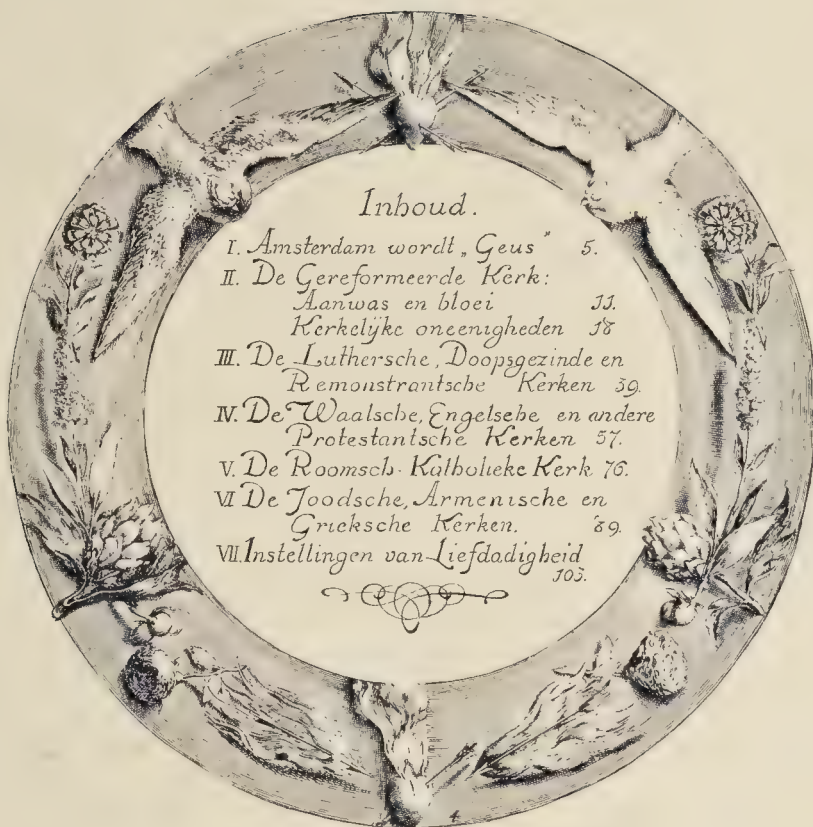 Inhoud.
I. Amsterdam wordt „Geus” 5.
II. De Gereformeerde Kerk:
Aanwas en bloei 11.
Kerkelijke oneenigheden 18
III. De Luthersche, Doopsgezinde en
Remonstrantsche Kerken 39.
IV. De Waalsche, Engelsche en andere
Protestantsche Kerken 57.
V. De Roomsch-Katholieke Kerk 76.
VI De Joodsche, Armenische en
Grieksche Kerken. 89.
VII. Instellingen van Liefdadigheid
103.
4.